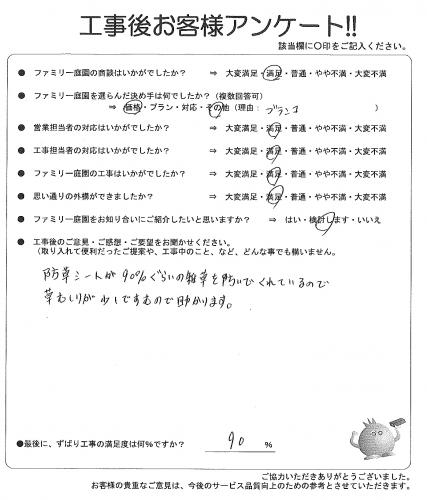 工事後お客様アンケート!!
該当欄に〇印をご記入ください。
● ファミリー庭園の商談はいかがでしたか? ⇒ 大変満足・満足・普通・やや不満・大変不満
● ファミリー庭園を選らんだ決め手は何でしたか?(複数回答可)
⇒ 価格・プラン・対応・その他(理由: ブランコ )
● 営業担当者の対応はいかがでしたか? ⇒ 大変満足・満足・普通・やや不満・大変不満
● 工事担当者の対応はいかがでしたか? ⇒ 大変満足・満足・普通・やや不満・大変不満
● ファミリー庭園の工事はいかがでしたか? ⇒ 大変満足・満足・普通・やや不満・大変不満
● 思い通りの外構ができましたか? ⇒ 大変満足・満足・普通・やや不満・大変不満
● ファミリー庭園をお知り合いにご紹介したいと思いますか? ⇒ はい・検討します・いいえ
● 工事後のご意見・ご感想・ご要望をお聞かせください。
(取り入れて便利だったご提案や、工事中のこと、など、どんな事でも構いません。
防草シートが90%ぐらいの雑草を防いでくれているので
草むしりが少しですむので助かります。
●最後に、ずばり工事の満足度は何%ですか? 90 %
ご協力いただきありがとうございました。
お客様の貴重なご意見は、今後のサービス品質向上のための参考とさせていただきます。